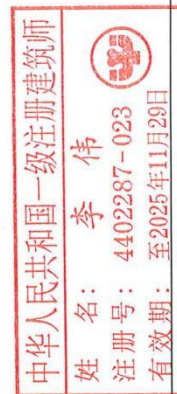 中华人民共和国一级注册建筑师
姓 名： 李 伟
注 册 号： 4402287-023
有 效 期： 至2025年11月29日